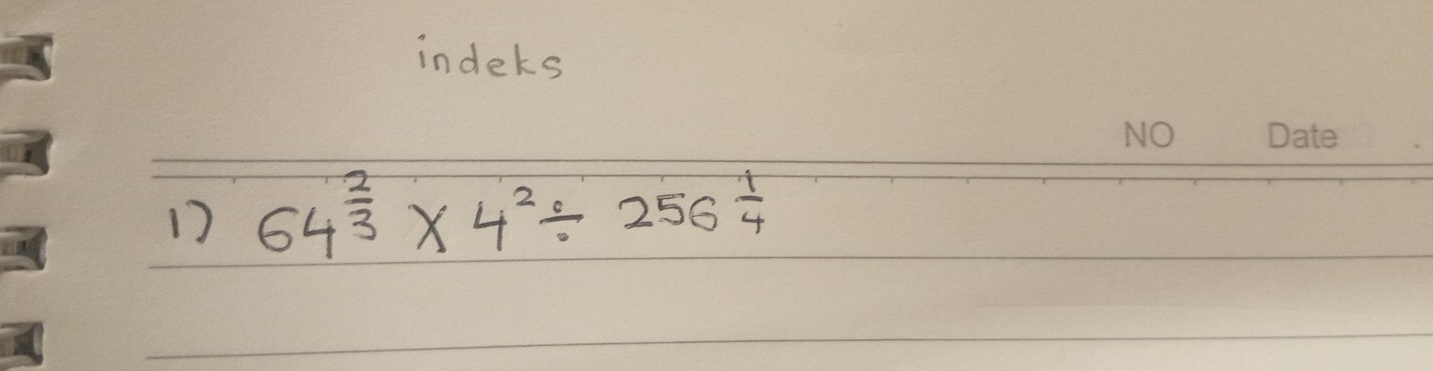 indeks
NO Date
1) 64^{2/3} X 4^2 ÷ 256^{1/4}